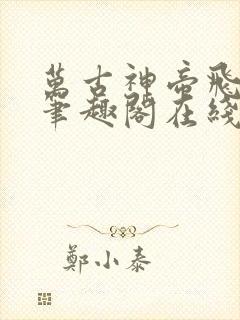 萬古神帝飛
筆趣閣在綫
鄭小泰